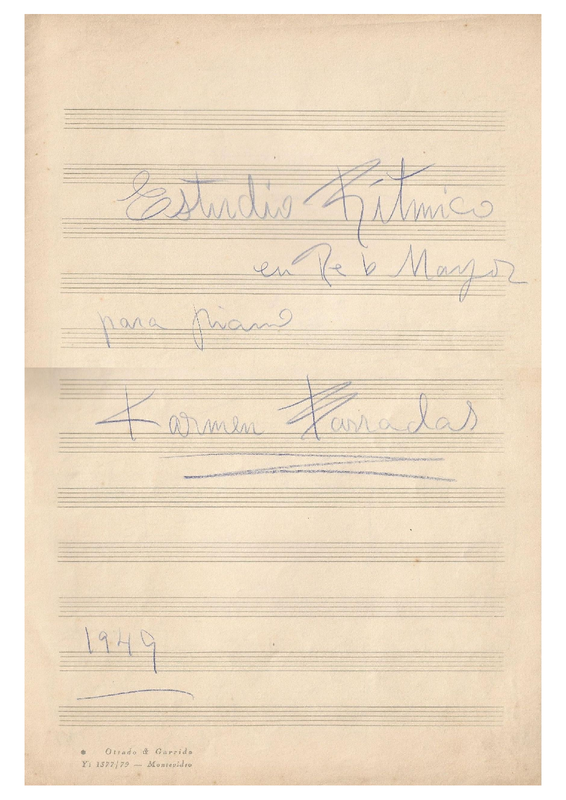 Estudio Rítmico
en Re b Mayor
para piano
Karmen Barradas
1949
& Garrido
— Montevideo